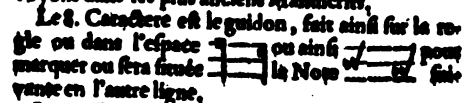 Le 8. Caractere est le guidon, fait ainsi sur la re-
gle ou dans l'espace ou ainsi pour
marquer ou sera située la Note sui-
vante en l'autre ligne,